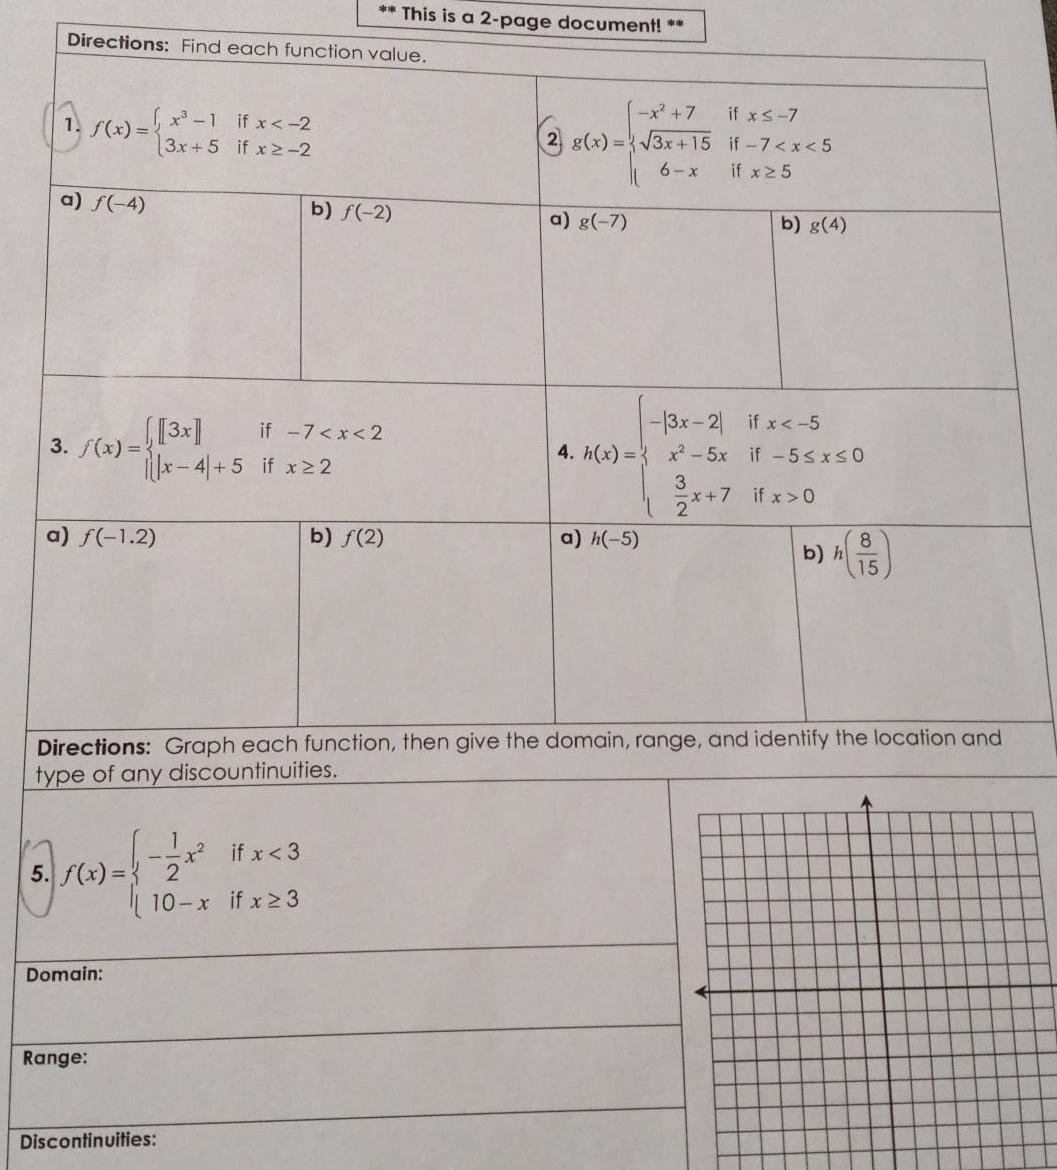 ** This is a 2-page document! **
Directions: Find each function value.
1. f(x) = { x³ − 1 if x < −2
3x + 5 if x ≥ −2
2. g(x) = { −x² + 7 if x ≤ −7
√(3x + 15) if −7 < x < 5
6 − x if x ≥ 5
a) f(−4)
b) f(−2)
a) g(−7)
b) g(4)
3. f(x) = { ⟦3x⟧ if −7 < x < 2
|x − 4| + 5 if x ≥ 2
4. h(x) = { −|3x − 2| if x < −5
x² − 5x if −5 ≤ x ≤ 0
3/2 x + 7 if x > 0
a) f(−1.2)
b) f(2)
a) h(−5)
b) h(8/15)
Directions: Graph each function, then give the domain, range, and identify the location and
type of any discountinuities.
5. f(x) = { −1/2 x² if x < 3
10 − x if x ≥ 3
Domain:
Range:
Discontinuities: